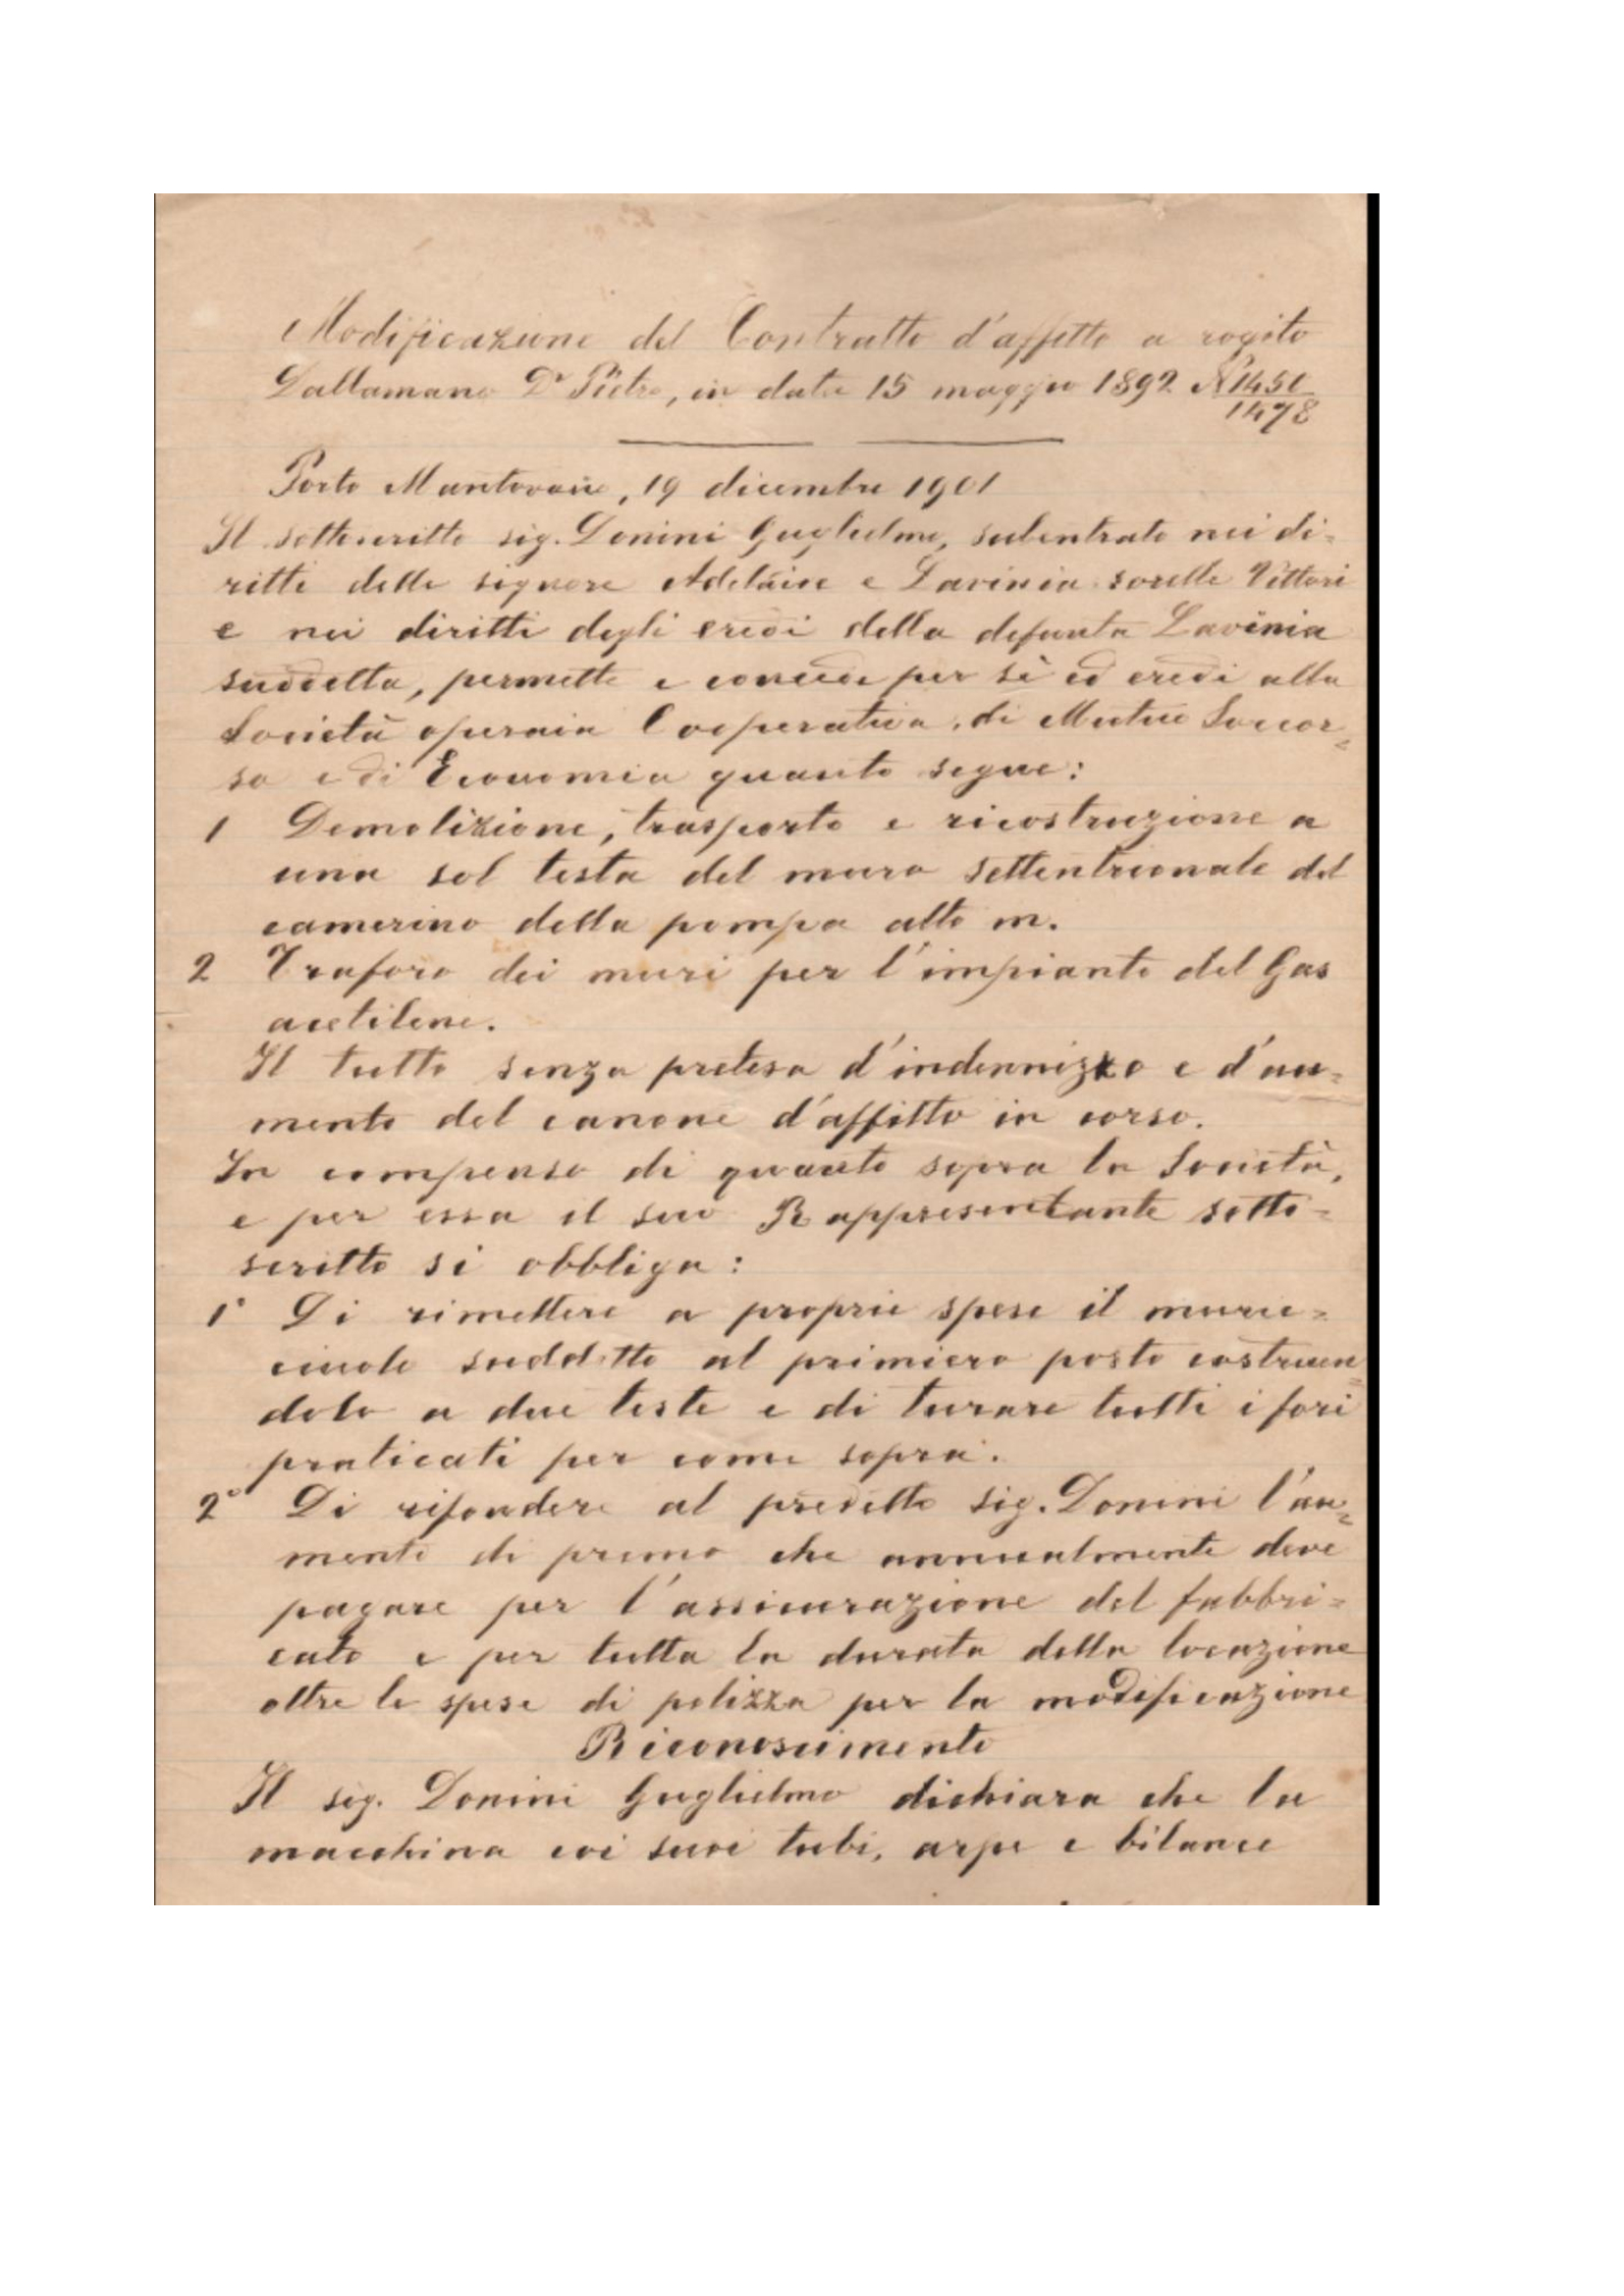 Modificazione del Contratto d'affitto a rogito
Dallamano Dr Pietro, in data 15 maggio 1892 N 1450
1478
Porto Mantovano, 19 dicembre 1901
Il sottoscritto sig. Donini Guglielmo, subentrato nei di=
ritti delle signore Adelaide e Lavinia sorelle Vettori
e nei diritti degli eredi della defunta Lavinia
suddetta, permette e concede per sè ed eredi alla
Società operaia Cooperativa di Mutuo Soccor=
so e di Economia quanto segue:
1 Demolizione, trasporto e ricostruzione a
una sol testa del muro settentrionale del
camerino della pompa alto m.
2 Traforo dei muri per l'impianto del Gas
acetilene.
Il tutto senza pretesa d'indennizzo e d'au=
mento del canone d'affitto in corso.
In compenso di quanto sopra la Società,
e per essa il suo Rappresentante sotto=
scritto si obbliga:
1° Di rimettere a proprie spese il muric=
ciuolo suddetto al primiero posto costruen=
dolo a due teste e di turare tutti i fori
praticati per come sopra.
2° Di rifondere al predetto sig. Donini l'au=
mento di premio che annualmente deve
pagare per l'assicurazione del fabbri=
cato e per tutta la durata della locazione
oltre le spese di polizza per la modificazione
Riconoscimento
Il sig. Donini Guglielmo dichiara che la
macchina coi suoi tubi, arpe e bilance